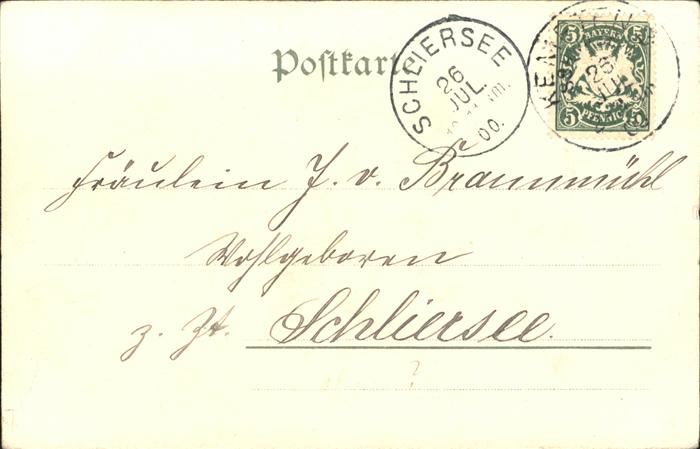 Postkarte
SCHLIERSEE
26
JUL.
00.
BAYERN
5 5
5 5
PFENNIG
26
JUL
Fräulein J. v. Braunmühl
Wohlgeboren
z. Zt. Schliersee.
?